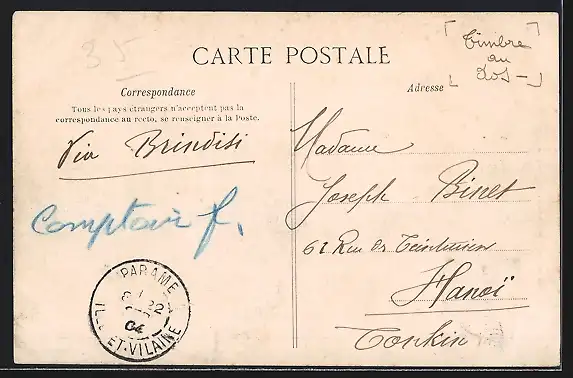 35
CARTE POSTALE
Timbre
au
Dos
Correspondance
Tous les pays étrangers n'acceptent pas la
correspondance au recto, se renseigner à la Poste.
Adresse
Via Brindisi
Comptoir f.
Madame
Joseph Binet
61 Rue des Teinturiers
Hanoï
Tonkin
PARAMÉ
22
04
ILLE-ET-VILAINE